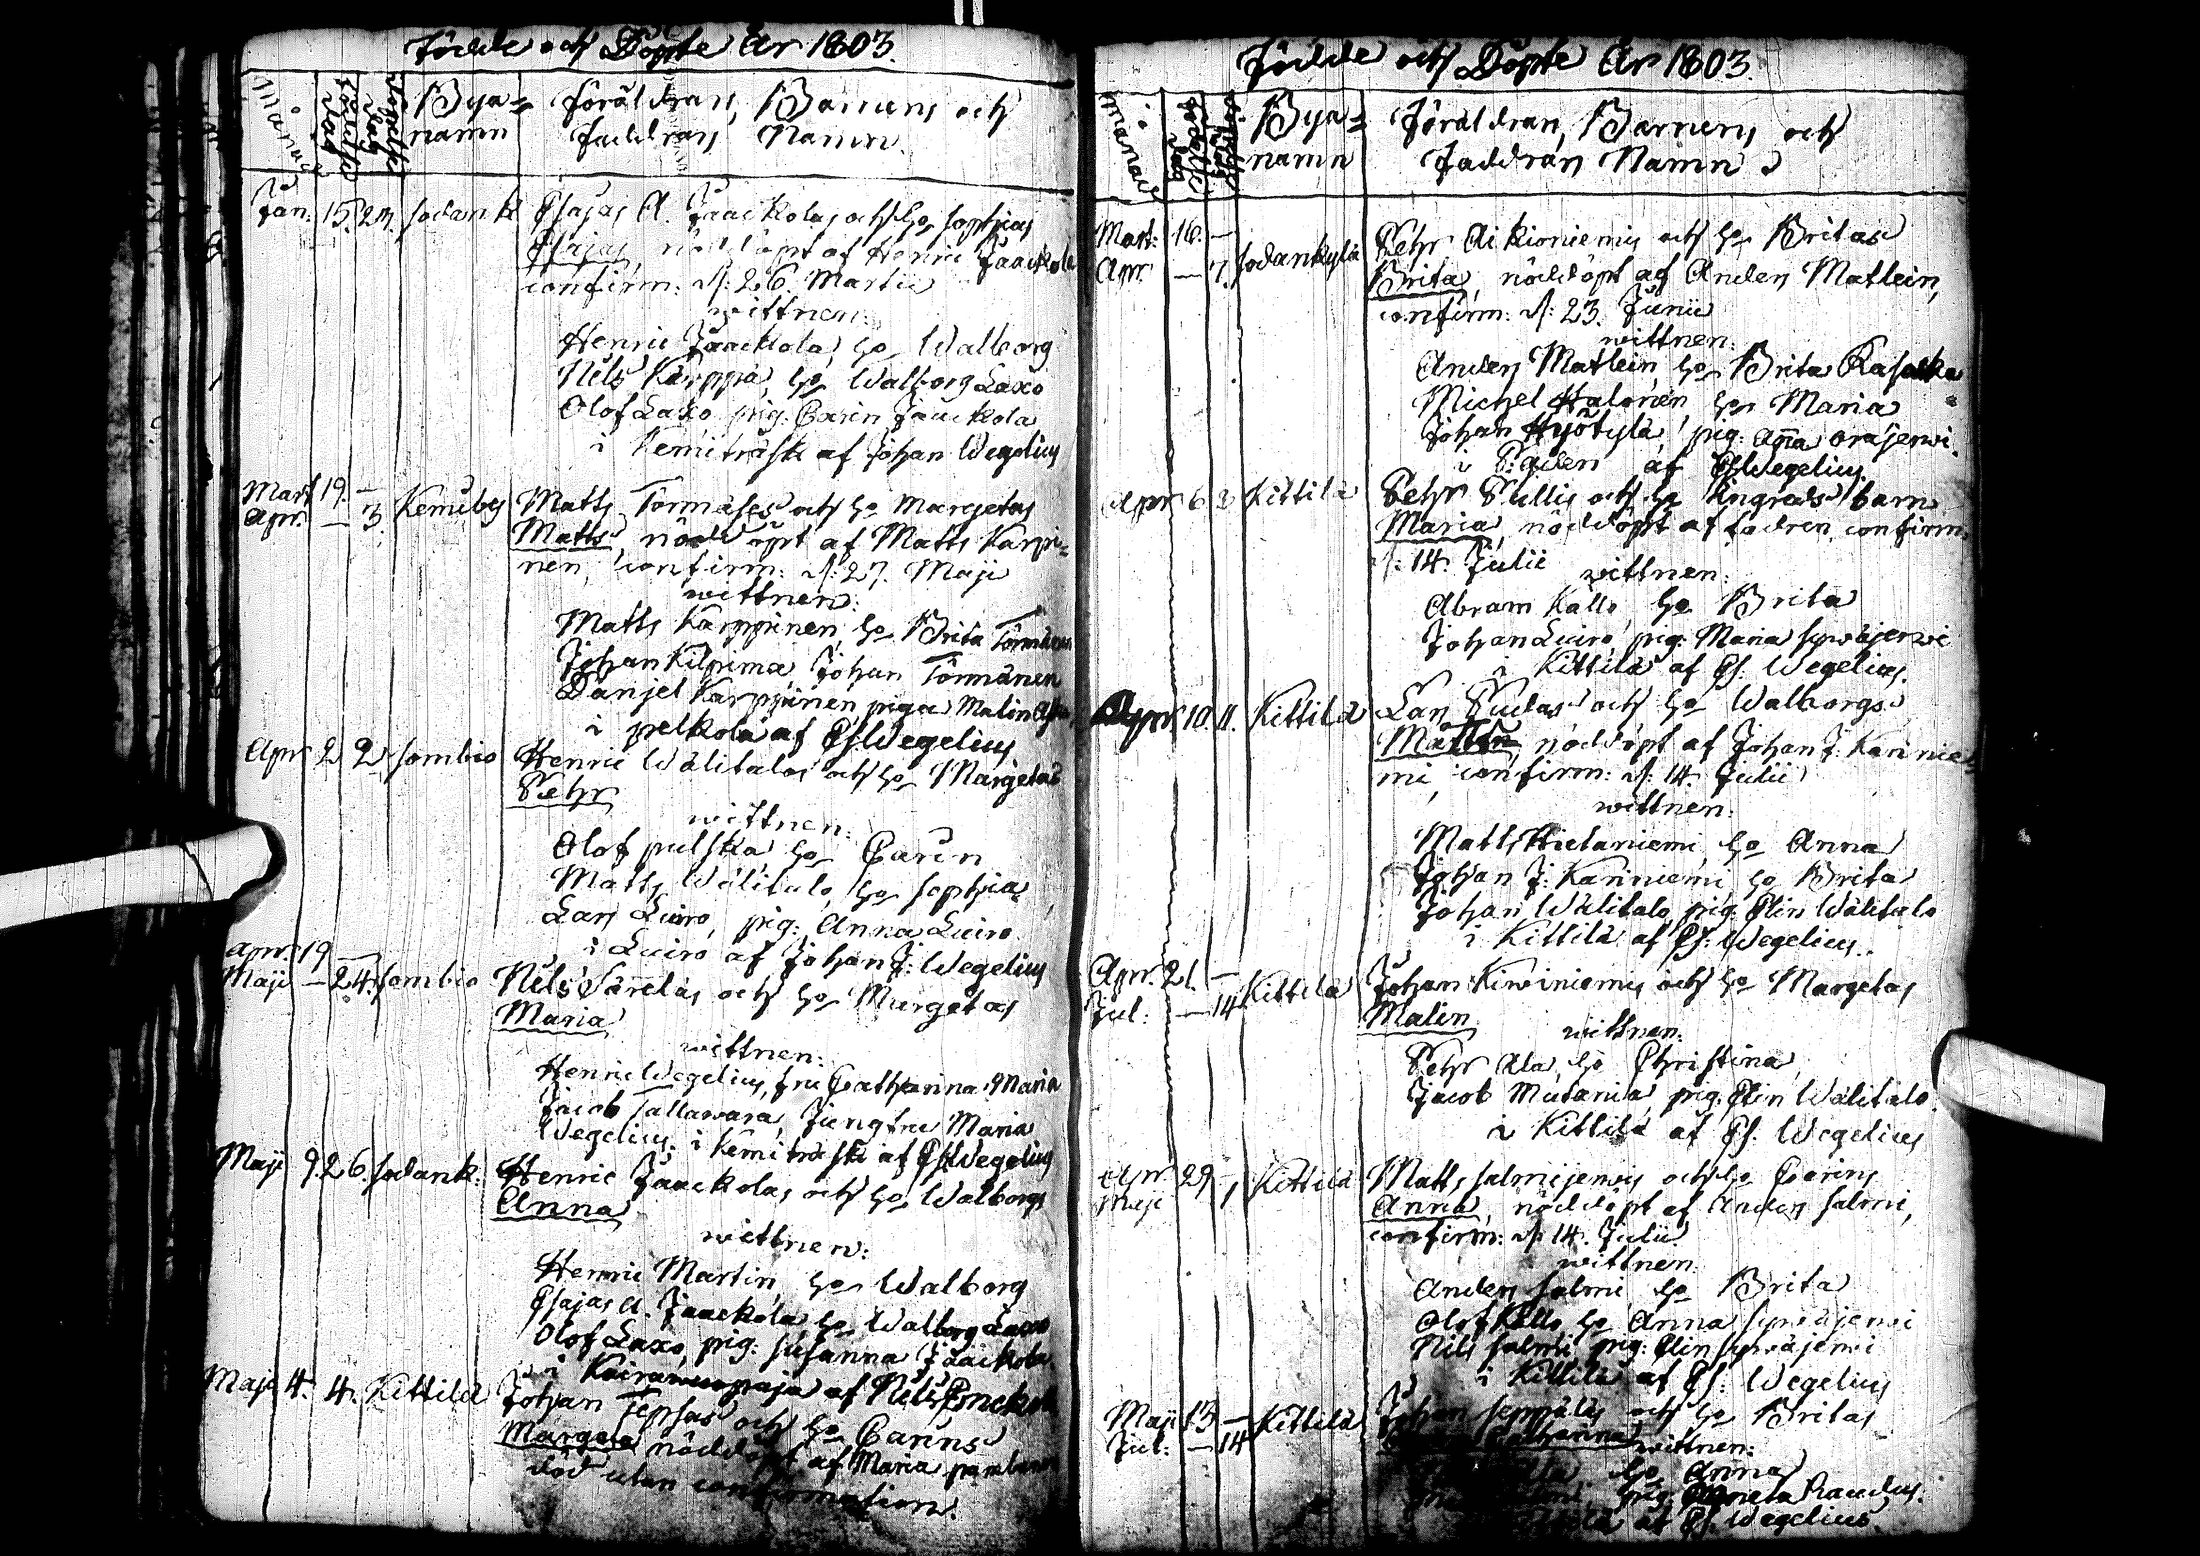 Födde och Döpte År 1803.
Månad
Födelse dag
Döpelse dag
Bya=
namn
Föräldran, Barnens och
Faddran Namn.
Jan: 15. 24. Sodank Esajas A. Jaackolas och ho Sophias
Esajas, nöddöpt af Henric Jaackola
confirm: d: 26. Martii
wittnen:
Henric Jaackola, ho Walborg
Nils Karppa, ho Walborg Laxo
Olof Laxo, pig: Carin Jaackola
i Kemiträsk af Johan Wegelius
Mart 19. —
Apr. — 3. Kemiby Matts Tormäses och ho Margetas
Matts, nöddöpt af Matts Karpi=
nen, confirm: d: 27. Maji
wittnen:
Matts Karppinen, ho Brita Törmänen
Johan Kilpima, Johan Törmänen
Danjel Karppinen, piga Malin
i pelkola af Es Wegelius
Apr 2 2 Sombio Henric Wälitalos och ho Margetas
Pehr
wittnen:
Olof pulska ho Carin
Matts Wälitalo, ho Sophia
Lars Luiro, pig: Anna Luiro
i Luiro af Johan J: Wegelius
Apr. 19 —
Maji — 24. Sombio Nils Sarelas och ho Margetas
Maria
wittnen:
Henric Wegelius, fru Catharina Maria
Jacob Tallawara, Jungfru Maria
Wegelius, i Kemiträsk af Es Wegelius
Maji 9. 26. Sodank: Henric Jaackolas och ho Walborgs
Anna
wittnen:
Henric Martin, ho Walborg
Esajas A. Jaackola ho Walborg Laxo
Olof Laxo, pig: Susanna Jaackola
i af Nils
Maji 4. 4. Kittilä Johan Tepsas och ho Carins
Margeta nöddöpt af Maria
död utan confirmation.
Födde och Döpte År 1803.
Månad
Födelse dag
Döpelse dag
Bya=
namn
Föräldran, Barnens och
Faddran Namn
Mart: 16. —
Apr. — 7. Sodankylä Pehr Aikioniemis och ho Britas
Brita, nöddöpt af Anders Matlein,
confirm: d: 23. Junii
wittnen:
Anders Matlein, ho Brita
Michel Halonen, ho Maria
Johan Hyötylä, pig: Anna Orajerwi
i af Es Wegelius
Apr 6 Kittilä Pehr Pullis och ho Ingreds barn
Maria, nöddöpt af fadren, confirm.
d: 14. Julii wittnen:
Abram Kallo, ho Brita
Johan Luiro, pig: Maria Sywäjerwi
i Kittilä af Es. Wegelius.
Apr 10. 11. Kittilä Lars Pudas och ho Walborgs
nöddöpt af Johan J: Kannie=
mi, confirm: d: 14. Julii
wittnen:
Matts Hietaniemi, ho Anna
Johan J: Kanniemi, ho Brita
Johan Wälitalo, pig: Elin Wälitalo
i Kittilä af Es: Wegelius.
Apr. 21. —
Jul: — 14 Kittilä Johan Kiwiniemis och ho Margetas
Malin
wittnen:
Pehr Ala, ho Christina
Jacob Mutania, pig: Elin Wälitalo
i Kittilä af Es. Wegelius
Apr. 29.
Maji 1 Kittilä Matts Salmijerwis och ho Carins
Anna, nöddöpt af Anders Salmi,
confirm: d: 14. Julii
wittnen:
Anders Salmi, ho Brita
Olof Kallo, ho Anna Sywäjerwi
Nils Salmi, pig: Elin Sywäjerwi
i Kittilä af Es: Wegelius
Maji 13 — Kittilä
Jul: — 14 Johan Seppäläs och ho Britas
Catharina wittnen:
ho Anna
pig: Raudus.
af Es. Wegelius